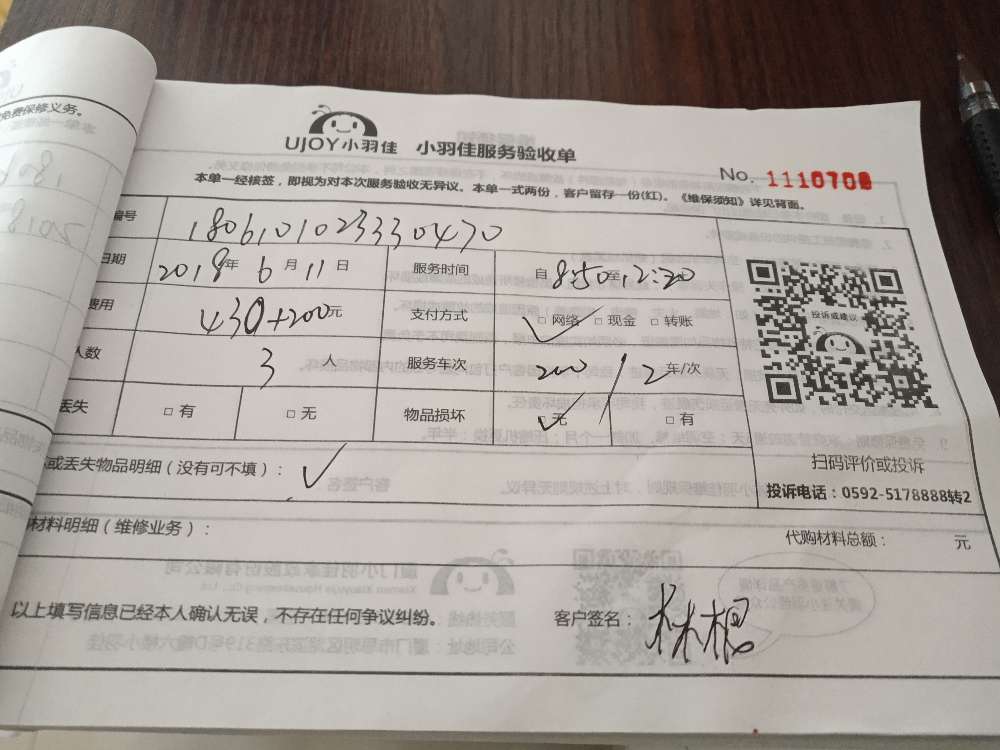 免费保修义务。
UJOY小羽佳 小羽佳服务验收单
No. 1110708
本单一经核签，即视为对本次服务验收无异议。本单一式两份，客户留存一份(红)。《维保须知》详见背面。
编号 1806101023330470
日期 2018年 6月 11日 服务时间 自8:50至12:20
费用 430+200元 支付方式 □网络 □现金 □转账
人数 3人 服务车次 200 / 2 车/次
丢失 □有 □无 物品损坏 □无 □有
投诉或建议
扫码评价或投诉
或丢失物品明细（没有可不填）：
投诉电话：0592-5178888转2
材料明细（维修业务）： 代购材料总额： 元
以上填写信息已经本人确认无误，不存在任何争议纠纷。 客户签名：